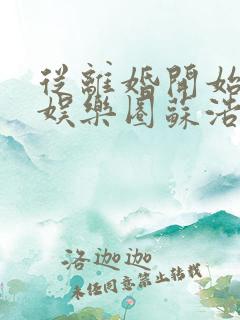 從離婚開始
娛樂圈蘇浩
洛迦迦
未经同意禁止转载